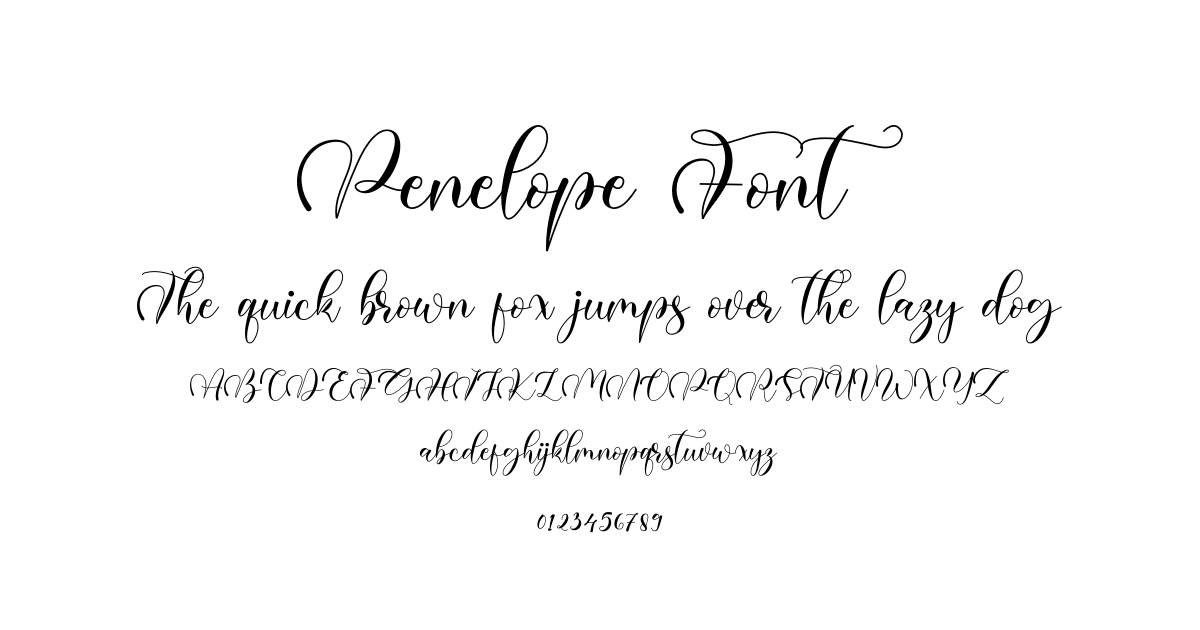 Penelope Font
The quick brown fox jumps over the lazy dog
ABCDEFGHIJKLMNOPQRSTUVWXYZ
abcdefghijklmnopqrstuvwxyz
0123456789